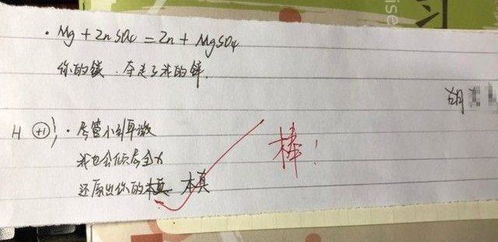 · Mg + ZnSO4 = Zn + MgSO4
你的镁，夺走了我的锌。
H +1 ·尽管小到单数
我也会倾尽全力
还原出你的本真 本真
棒！